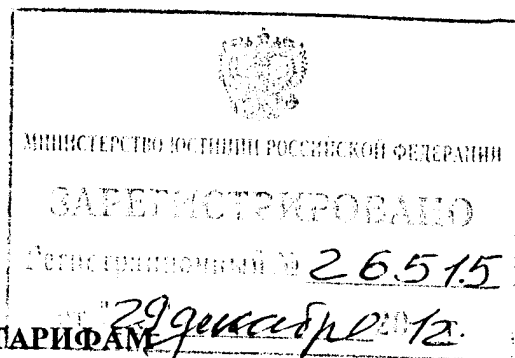 МИНИСТЕРСТВО ЮСТИЦИИ РОССИЙСКОЙ ФЕДЕРАЦИИ
ЗАРЕГИСТРИРОВАНО
Регистрационный № 26515
от "29 декабря 2012.
ТАРИФАМ